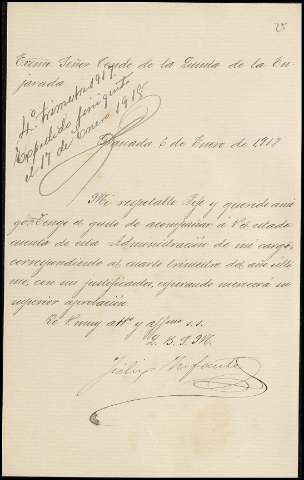 25
Excmo Señor Conde de la Quinta de la En
jarada
4º trimestre 1917.
Expedido finiquito
el 17 de Enero 1918
Granada 6 de Enero de 1918
Mi respetable Jefe y querido ami
go: Tengo el gusto de acompañar á Vd. estado
cuenta de esta Administración de mi cargo,
correspondiente al cuarto trimestre del año últi
mo, con sus justificantes, esperando merecerá su
superior aprobación.
De V. muy attº y affmo s.s.
Q. B. S. M.
Félix Infante